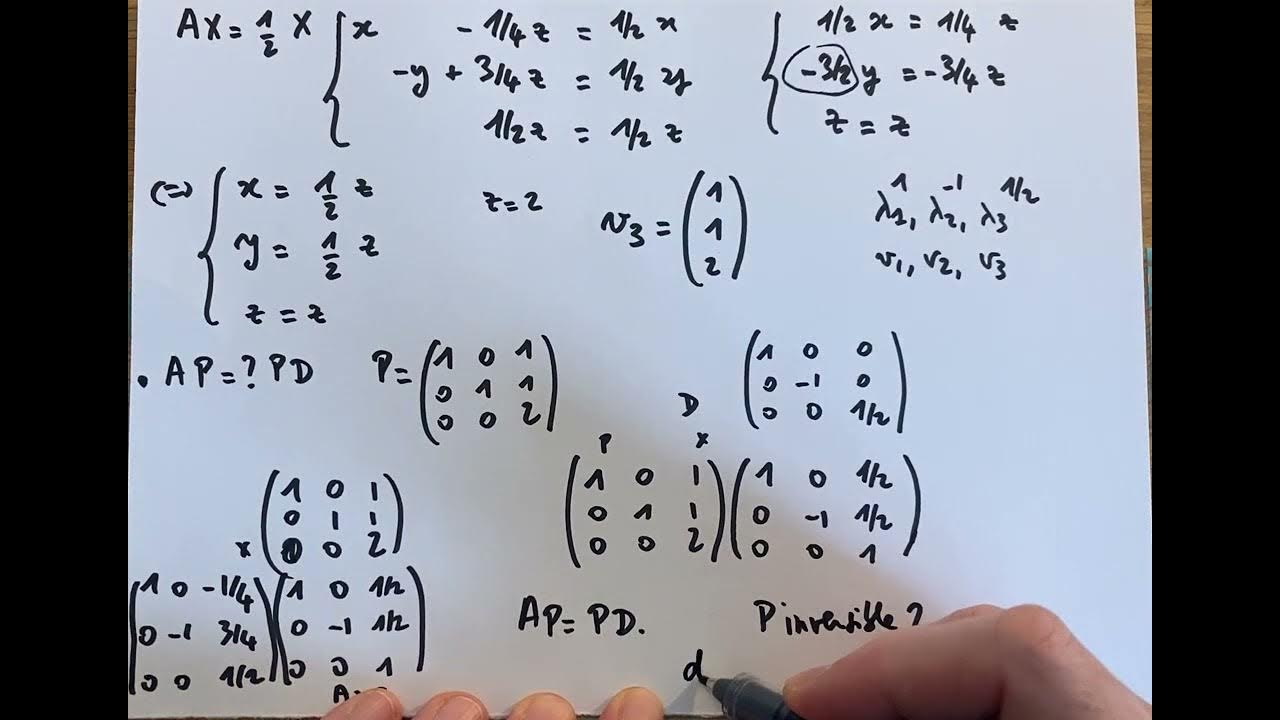 AX = 1/2 X { x - 1/4 z = 1/2 x
-y + 3/4 z = 1/2 y
1/2 z = 1/2 z
{ 1/2 x = 1/4 z
-3/2 y = -3/4 z
z = z
(=> { x = 1/2 z
y = 1/2 z
z = z
z = 2
v3 = (1
1
2)
1 -1 1/2
λ1, λ2, λ3
v1, v2, v3
. AP = ? PD
P = (1 0 1
0 1 1
0 0 2)
D
(1 0 0
0 -1 0
0 0 1/2)
P x
(1 0 1
0 1 1
0 0 2)
(1 0 1/2
0 -1 1/2
0 0 1)
x
(1 0 1
0 1 1
0 0 2)
(1 0 -1/4
0 -1 3/4
0 0 1/2)
(1 0 1/2
0 -1 1/2
0 0 1)
AP = PD.
P inversible ?
d